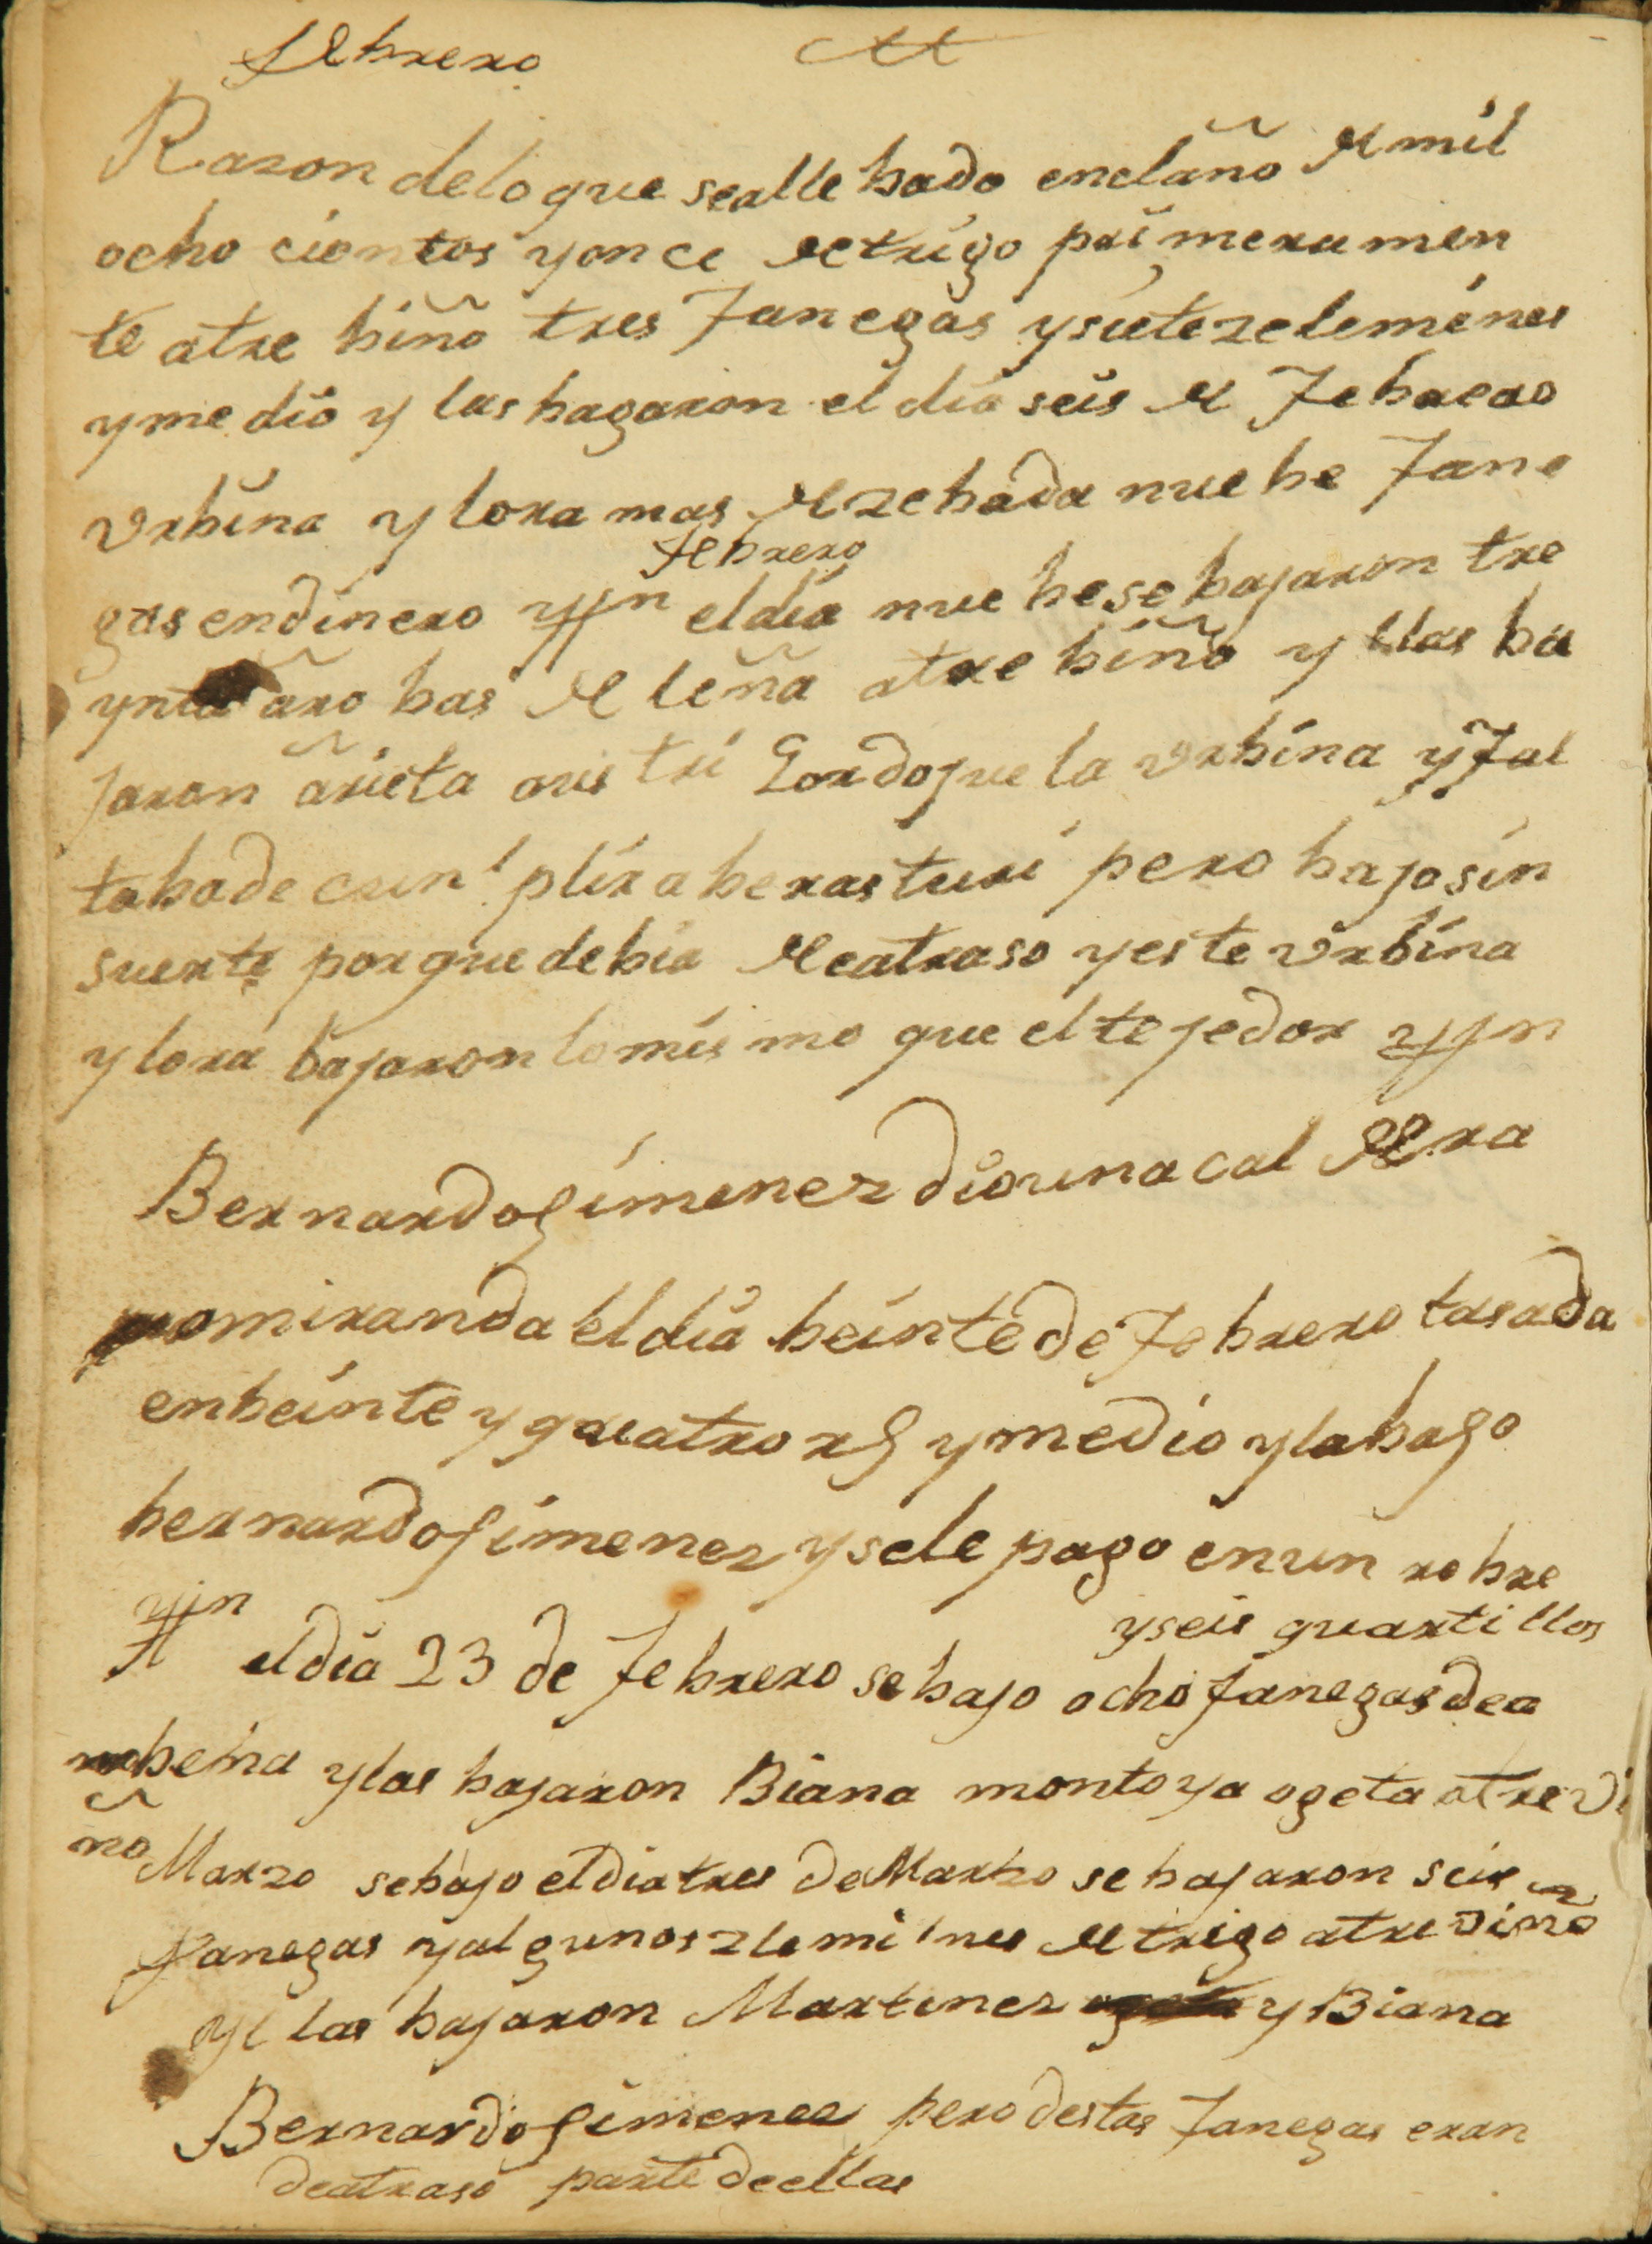 febrero
Razon delo que sealle bado enelaño de mil
ocho cientos yonce de trigo primeramen
te atre biño tres Fanegas ysiete zelemines
yme dio y las bagaron el dia seis de Febrero
Vrbina y lora mas de zebada nuebe Fane
gas endinero yjn
Febrero
eldia nuebe se bajaron tre
ynta aro bas de leña atre biño y llas ba
jaron arieta ous tri Gordo que la vrbina yFal
taba de cun plir a berasturi pero bajo sin
suerte por que debia de atraso y este Vrbina
y lora bajaron lo mis mo que el tejedor yjn
Bernardo gimenez dio una cal dera
miranda el dia beinte de Febrero tasada
enbeinte y quatro rs ymedio yla bago
bernardo gimenez y sele pago enun robre
yseis quartillos
yjn
eldia 23 de Febrero se bajo ocho fanegas dea
beina ylas bajaron Biana montoya ogeta atrevi
ño
Marzo se bajo el dia tres de Marzo se bajaron seis
Fanegas y algunos zlemines de trigo atre viño
yl las bajaron Martinez y Biana
Bernardo gimenez pero destas Fanegas eran
deatraso parte deellas